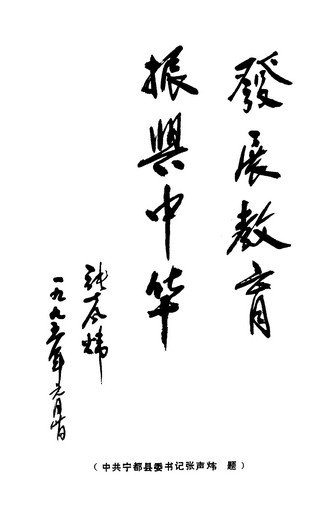 發展教育
振興中華
張声煒
一九九五年元月
（中共宁都县委书记张声炜 题）